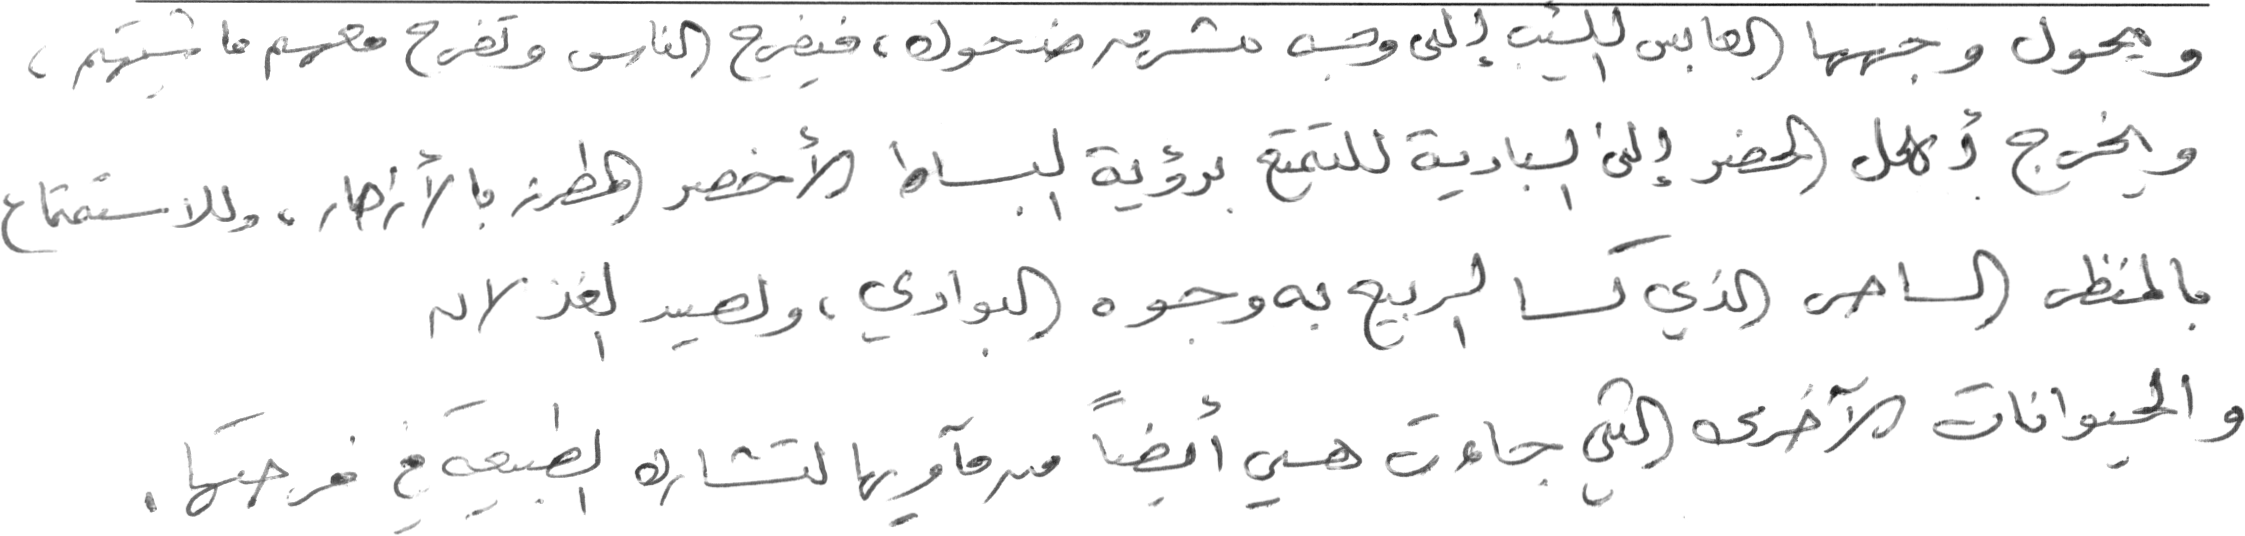 ويحول وجهها العابس الكئيب إلى وجه مشرق ضحوك، فيفرح الناس وتفرح معهم ماشيتهم،
ويخرج أهل الحضر إلى البادية للتمتع برؤية البساط الأخضر المطرز بالأزهار، وللاستمتاع
بالمنظر الساحر الذي كسا الربيع به وجوه البوادي، ولصيد الغزلان
والحيوانات الآخرى التي جاءت هي أيضاً من مآويها لتشارك الطبيعة في فرحتها.